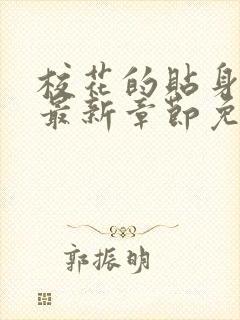 校花的贴身
最新章节免
郭振明